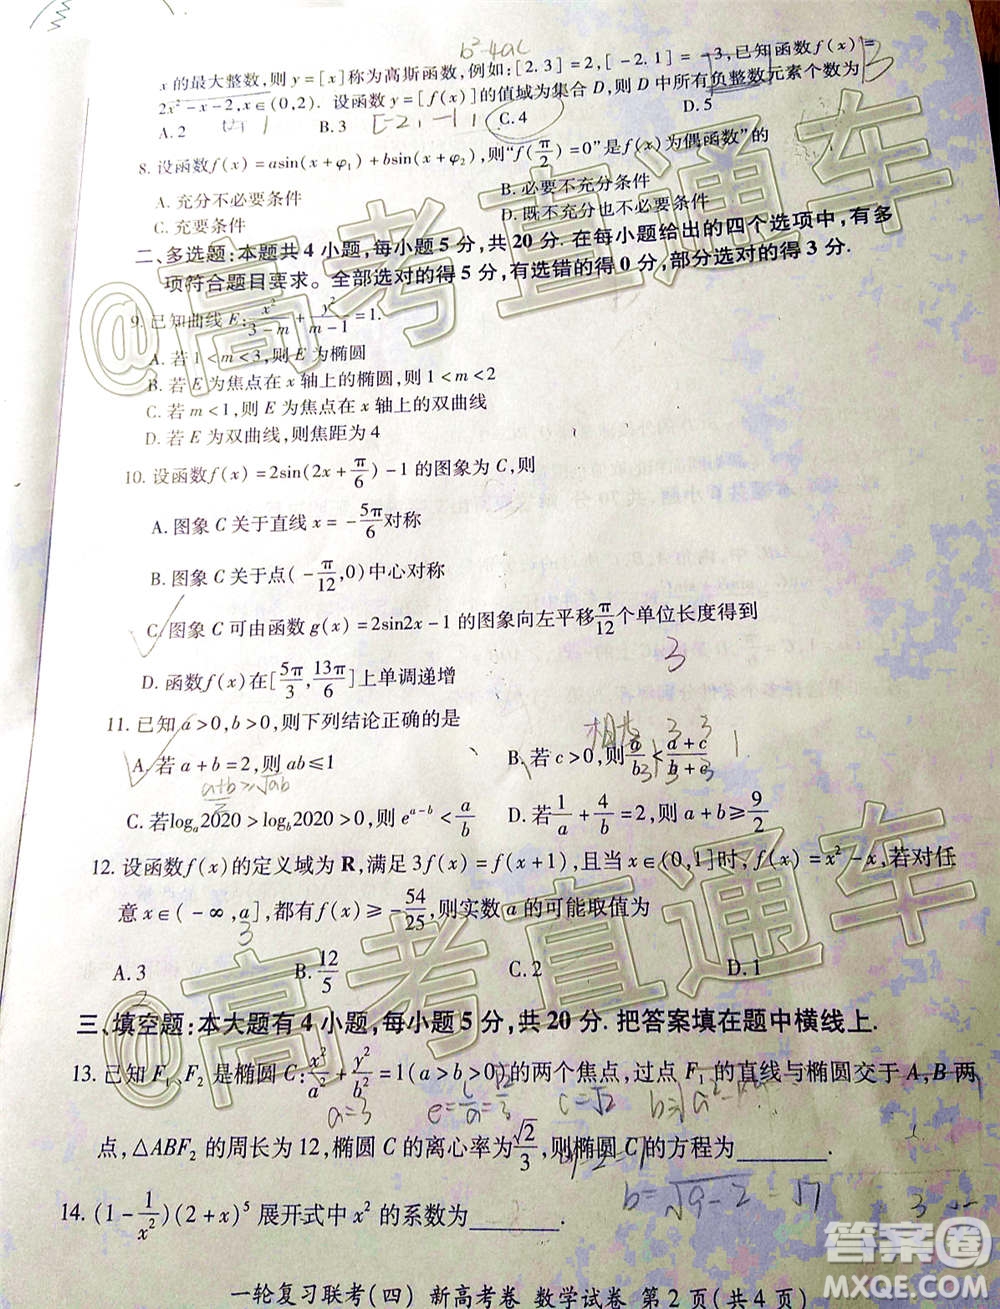 b²-4ac
x的最大整数,则y=[x]称为高斯函数,例如:[2.3]=2,[-2.1]=-3,已知函数f(x)=
2x²-x-2,x∈(0,2). 设函数y=[f(x)]的值域为集合D,则D中所有负整数元素个数为
A.2 B.3 C.4 D.5
[-2,-1]
8.设函数f(x)=asin(x+φ₁)+bsin(x+φ₂),则“f(π/2)=0”是f(x)为偶函数”的
A.充分不必要条件 B.必要不充分条件
C.充要条件 D.既不充分也不必要条件
二、多选题:本题共4小题,每小题5分,共20分.在每小题给出的四个选项中,有多
项符合题目要求。全部选对的得5分,有选错的得0分,部分选对的得3分.
9.已知曲线E:x²/(3-m)+y²/(m-1)=1.
A.若1<m<3,则E为椭圆
B.若E为焦点在x轴上的椭圆,则1<m<2
C.若m<1,则E为焦点在x轴上的双曲线
D.若E为双曲线,则焦距为4
10.设函数f(x)=2sin(2x+π/6)-1的图象为C,则
A.图象C关于直线x=-5π/6对称
B.图象C关于点(-π/12,0)中心对称
C.图象C可由函数g(x)=2sin2x-1的图象向左平移π/12个单位长度得到
3
D.函数f(x)在[5π/3,13π/6]上单调递增
11.已知a>0,b>0,则下列结论正确的是
A.若a+b=2,则ab≤1 B.若c>0,则a/b<(a+c)/(b+c)
(a+b)/2≥√ab
C.若log_a2020>log_b2020>0,则e^(a-b)<a/b D.若1/a+4/b=2,则a+b≥9/2
12.设函数f(x)的定义域为R,满足3f(x)=f(x+1),且当x∈(0,1]时,f(x)=x²-x,若对任
意x∈(-∞,a],都有f(x)≥-54/25,则实数a的可能取值为
3
A.3 B.12/5 C.2 D.1
三、填空题:本大题有4小题,每小题5分,共20分.把答案填在题中横线上.
13.已知F₁、F₂是椭圆C:x²/a²+y²/b²=1(a>b>0)的两个焦点,过点F₁的直线与椭圆交于A,B两
a=3 e=c/a=√2/3 c=√2
点,△ABF₂的周长为12,椭圆C的离心率为√2/3,则椭圆C的方程为________.
b=√9-2=√7
14.(1-1/x²)(2+x)⁵展开式中x²的系数为________.
一轮复习联考(四) 新高考卷 数学试卷 第2页(共4页)
@高考直通车
@高考直通车
答案圈
MXQE.COM